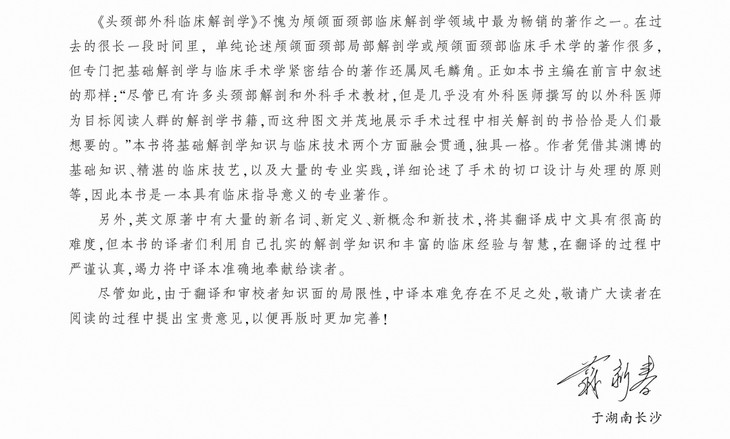 《头颈部外科临床解剖学》不愧为颅颌面颈部临床解剖学领域中最为畅销的著作之一。在过
去的很长一段时间里，单纯论述颅颌面颈部局部解剖学或颅颌面颈部临床手术学的著作很多，
但专门把基础解剖学与临床手术学紧密结合的著作还属凤毛麟角。正如本书主编在前言中叙述
的那样：“尽管已有许多头颈部解剖和外科手术教材，但是几乎没有外科医师撰写的以外科医师
为目标阅读人群的解剖学书籍，而这种图文并茂地展示手术过程中相关解剖的书恰恰是人们最
想要的。”本书将基础解剖学知识与临床技术两个方面融会贯通，独具一格。作者凭借其渊博的
基础知识、精湛的临床技艺，以及大量的专业实践，详细论述了手术的切口设计与处理的原则
等，因此本书是一本具有临床指导意义的专业著作。
另外，英文原著中有大量的新名词、新定义、新概念和新技术，将其翻译成中文具有很高的
难度，但本书的译者们利用自己扎实的解剖学知识和丰富的临床经验与智慧，在翻译的过程中
严谨认真，竭力将中译本准确地奉献给读者。
尽管如此，由于翻译和审校者知识面的局限性，中译本难免存在不足之处，敬请广大读者在
阅读的过程中提出宝贵意见，以便再版时更加完善！
于湖南长沙